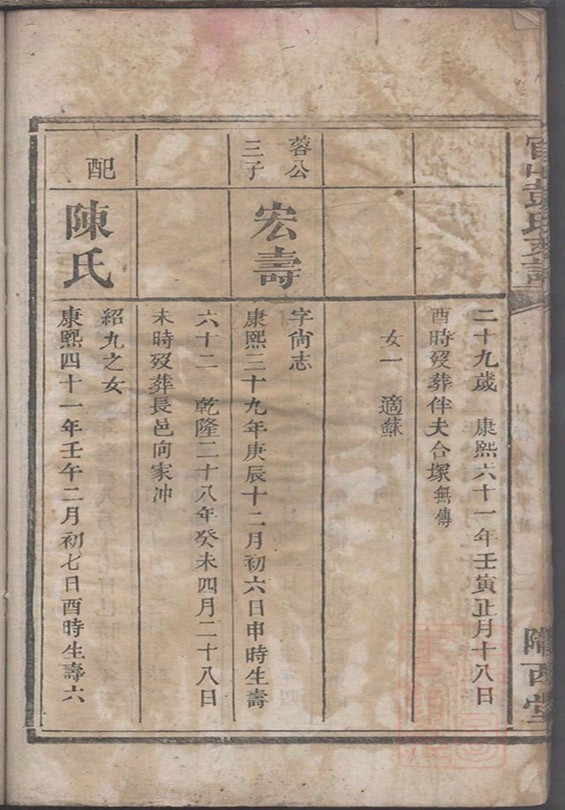 彭氏支譜
隴西堂
二十九歲 康熙六十一年壬寅正月十八日
酉時歿葬伴夫合塚無傳
女一 適蘇
蓉公三子
宏壽
字尙志
康熙三十九年庚辰十二月初六日申時生壽
六十二 乾隆二十八年癸未四月二十八日
未時歿葬長邑向家冲
配
陳氏
紹九之女
康熙四十一年壬午二月初七日酉時生壽六